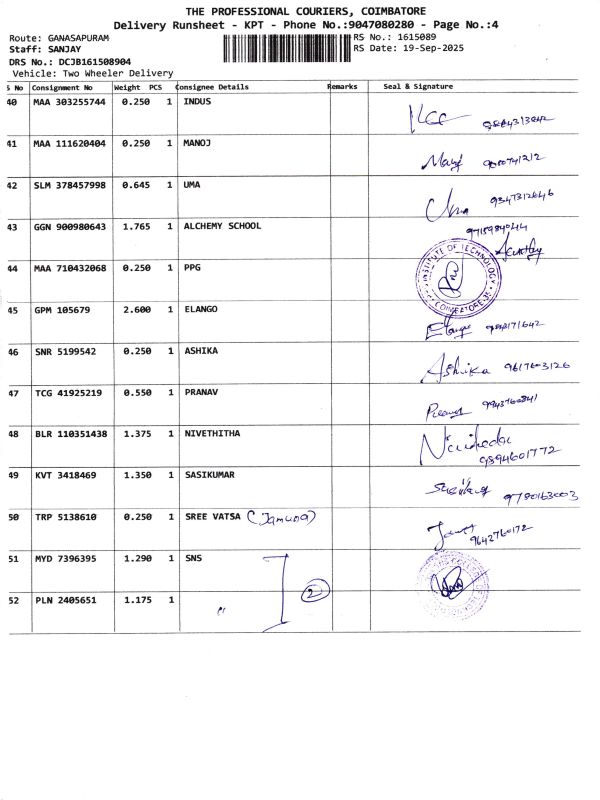 THE PROFESSIONAL COURIERS, COIMBATORE
Delivery Runsheet - KPT - Phone No.:9047080280 - Page No.:4
Route: GANASAPURAM RS No.: 1615089
Staff: SANJAY RS Date: 19-Sep-2025
DRS No.: DCJB161508904
Vehicle: Two Wheeler Delivery
S No Consignment No Weight PCS Consignee Details Remarks Seal & Signature
40 MAA 303255744 0.250 1 INDUS
41 MAA 111620404 0.250 1 MANOJ
42 SLM 378457998 0.645 1 UMA Uma 9347312646
43 GGN 900980643 1.765 1 ALCHEMY SCHOOL
44 MAA 710432068 0.250 1 PPG INSTITUTE OF TECHNOLOGY COIMBATORE
45 GPM 105679 2.600 1 ELANGO Elango
46 SNR 5199542 0.250 1 ASHIKA Ashika 9617603126
47 TCG 41925219 0.550 1 PRANAV
48 BLR 110351438 1.375 1 NIVETHITHA 9894601772
49 KVT 3418469 1.350 1 SASIKUMAR 9790163003
50 TRP 5138610 0.250 1 SREE VATSA (Jamuna) 9642760172
51 MYD 7396395 1.290 1 SNS
2
52 PLN 2405651 1.175 1 "